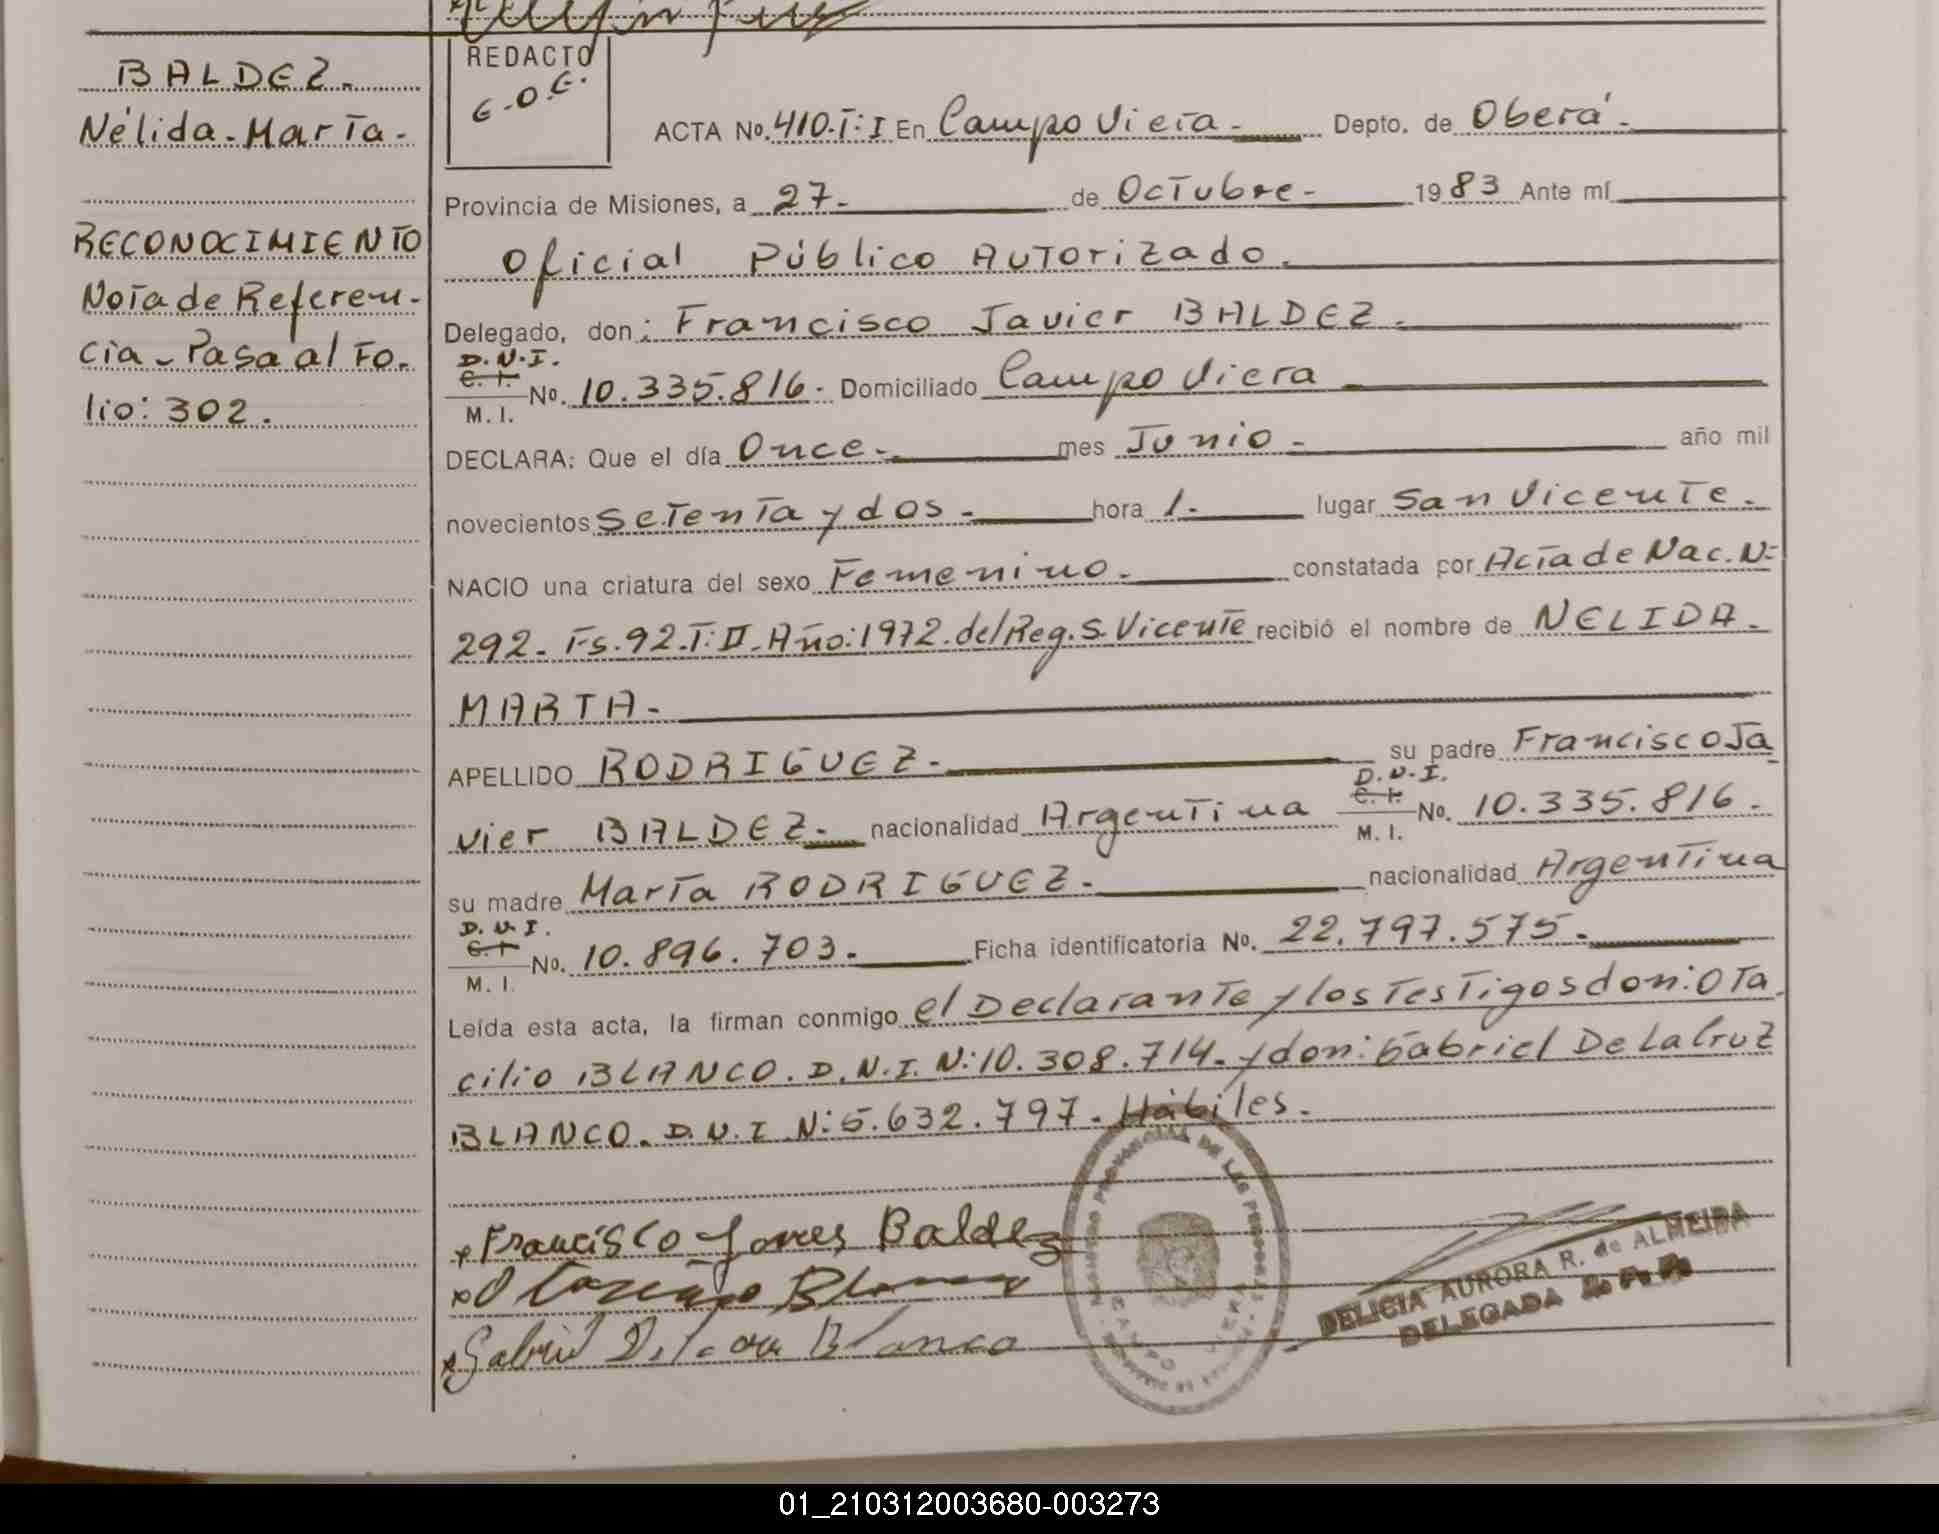 BALDEZ.
Nélida-Marta-
RECONOCIMIENTO
Nota de Referen-
cia-Pasa al Fo.
lio: 302.
REDACTO
E.O.E.
ACTA No. 410.T:I En Campo Viera- Depto. de Oberá.-
Provincia de Misiones, a 27- de Octubre- 1983 Ante mí
Oficial Público Autorizado.
Delegado, don: Francisco Javier BALDEZ.
D.N.I.
C. I. No. 10.335.816. Domiciliado Campo Viera
M. I.
DECLARA: Que el día Once- mes Junio- año mil
novecientos Setenta y dos- hora 1. lugar San Vicente.
NACIO una criatura del sexo Femenino. constatada por Acta de Nac. N:
292. Fs.92.T:II-Año:1972.del Reg.S.Vicente recibió el nombre de NELIDA.
MARTA-
APELLIDO RODRIGUEZ- su padre Francisco Ja
vier BALDEZ- nacionalidad Argentina D.N.I. C. I. No. 10.335.816.
M. I.
su madre Marta RODRIGUEZ- nacionalidad Argentina
D.N.I.
C. I. No. 10.896.703. Ficha identificatoria No. 22.797.575.
M. I.
Leída esta acta, la firman conmigo el Declarante y los Testigos don: Ota
cilio BLANCO. D.N.I. N:10.308.714. y don: Gabriel De La Cruz
BLANCO. D.N.I N:5.632.797. Hábiles.
x Francisco Baldez
x Blanco
x Gabriel Blanco
CAMPO VIERA
DELICIA AURORA R. de ALMEIDA
DELEGADA R. P. P.
01_210312003680-003273